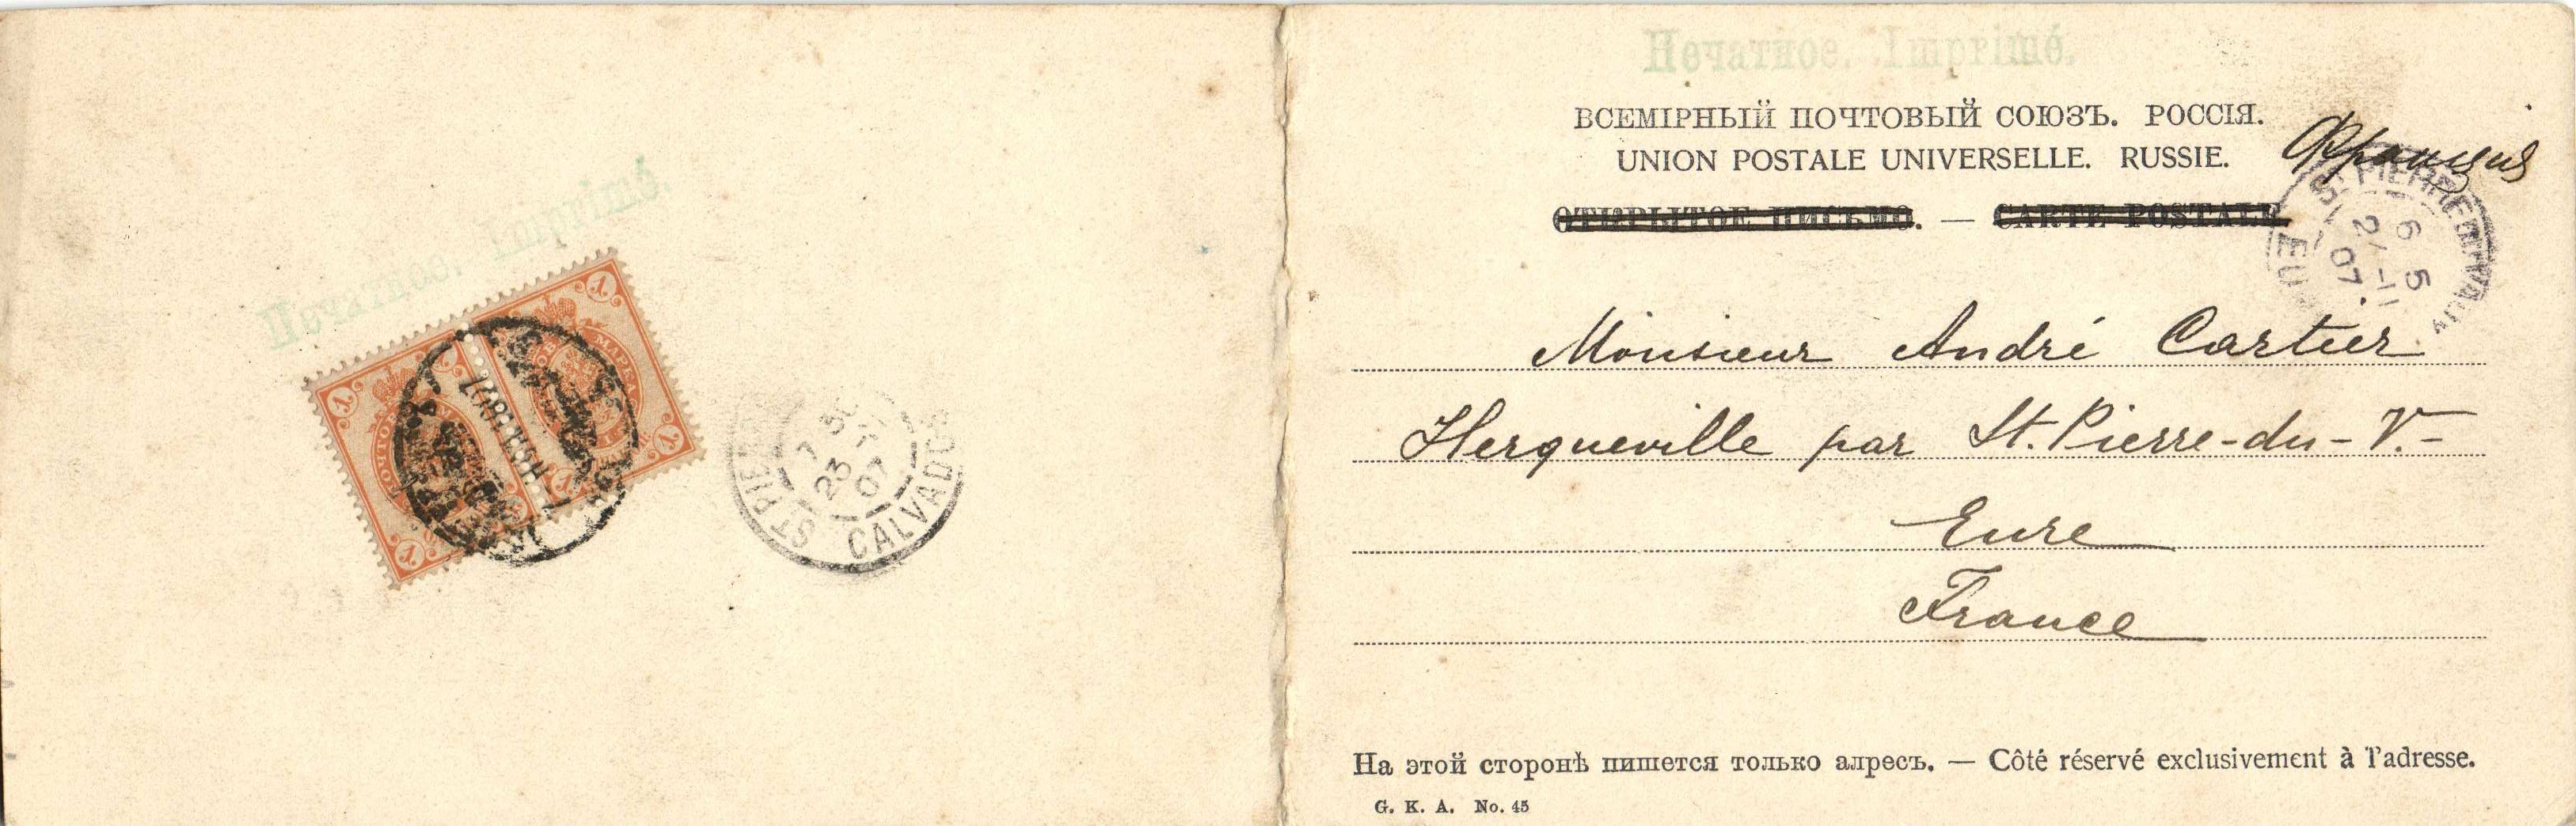 Печатное. Imprimé.
ПОЧТОВ МАРКА
1
7 30
23 -
07
ST PIER CALVADOS
Печатное. Imprimé.
ВСЕМІРНЫЙ ПОЧТОВЫЙ СОЮЗЪ. РОССІЯ.
UNION POSTALE UNIVERSELLE. RUSSIE.
Франція
ОТКРЫТОЕ ПИСЬМО. — CARTE POSTALE
ST PIERRE
6 5
-11
07
EU
Monsieur André Cartier
Herqueville par St. Pierre-du-V.-
Eure
France
На этой сторонѣ пишется только адресъ. — Côté réservé exclusivement à l'adresse.
G. K. A. No. 45